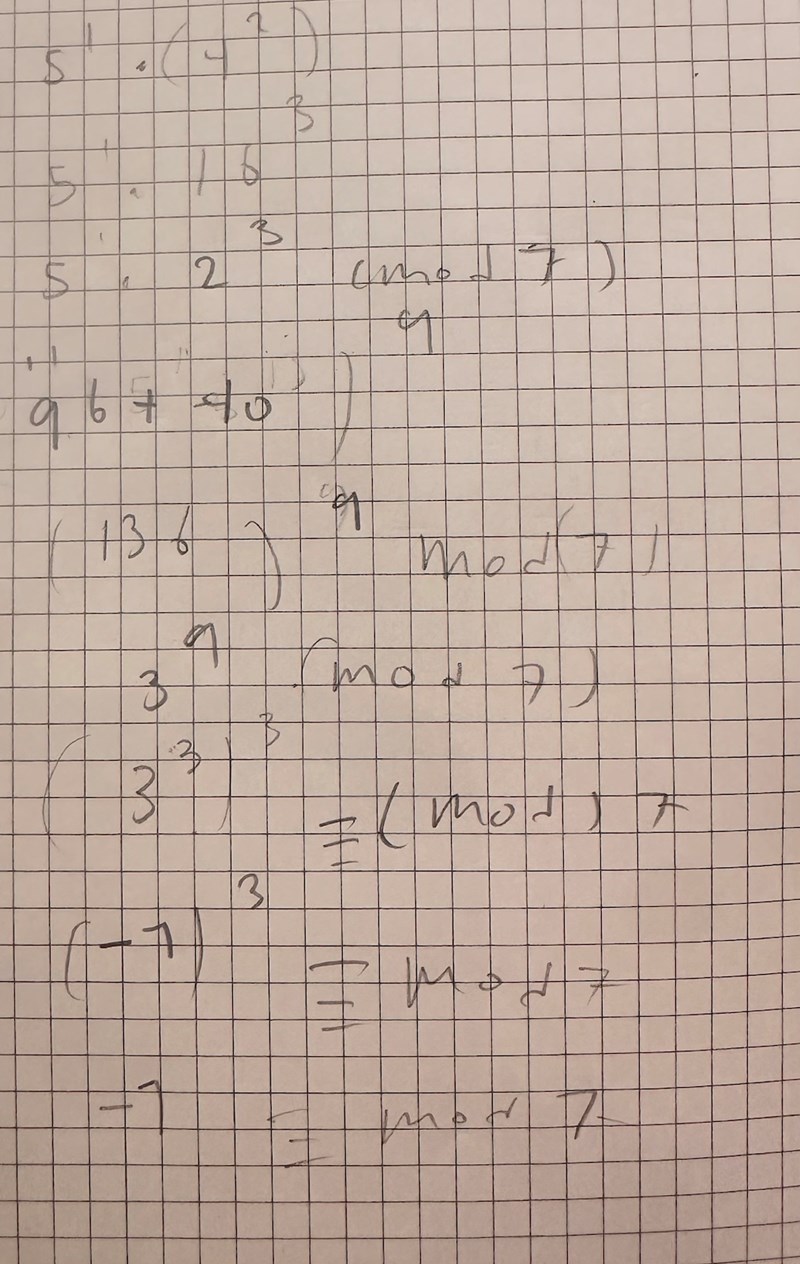 5¹ · (4²)³
5¹ · 16³
5¹ · 2³ (mod 7)
96 + 40)⁹
(136)⁹ mod(7)
3⁹ (mod 7)
(3³)³ ≡ (mod) 7
(-1)³ ≡ mod 7
-1 ≡ mod 7